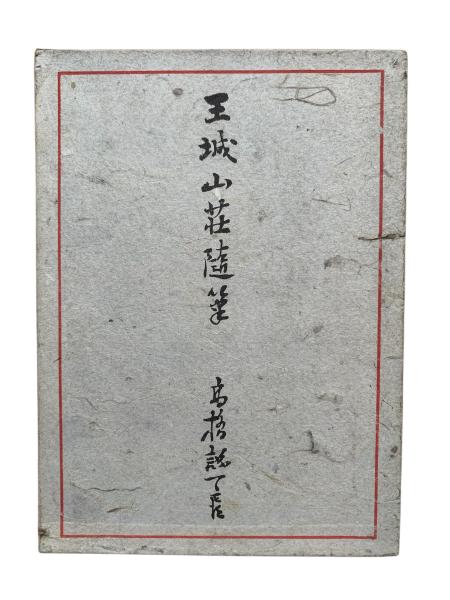 王城山荘隨筆
高橋誠一郎